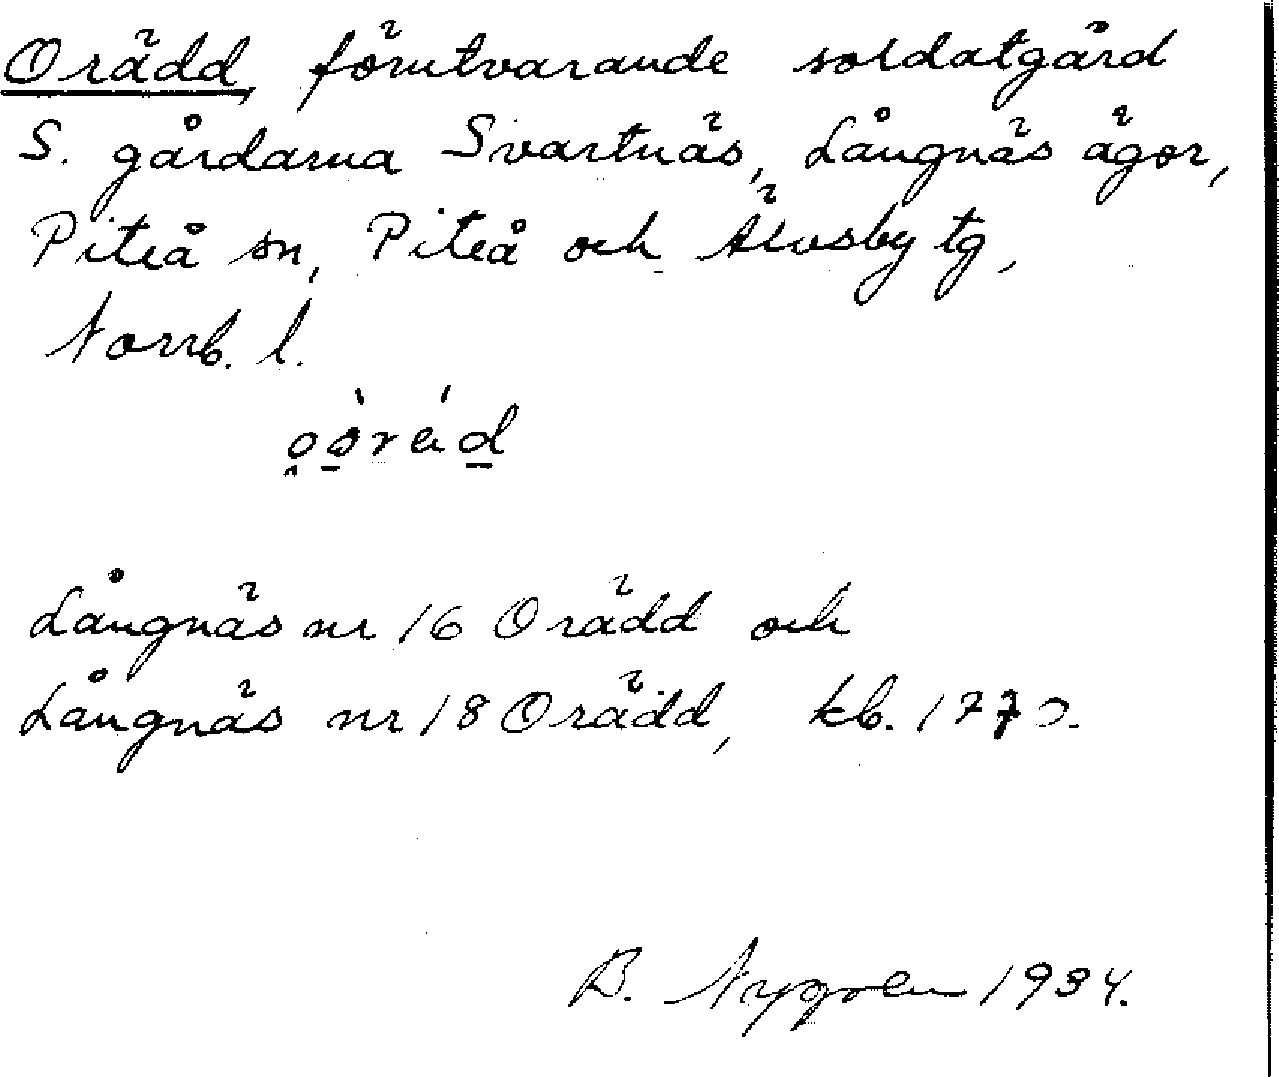 Orädd, förutvarande soldatgård
S. gårdarna Svartnäs, Långnäs ägor,
Piteå sn, Piteå och Älvsby tg,
Norrb. l.
Långnäs nr 16 Orädd och
Långnäs nr 18 Orädd, kb. 1770.
B. Nygren 1934.